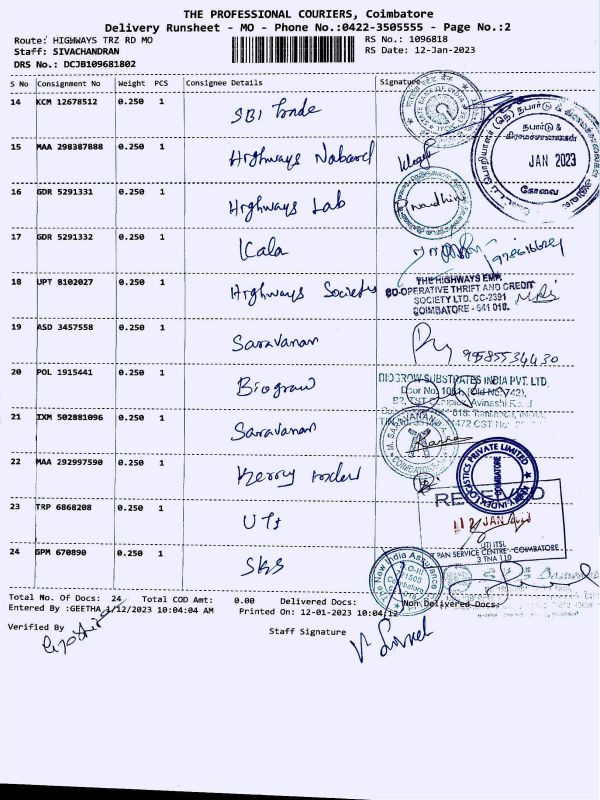 THE PROFESSIONAL COURIERS, Coimbatore
Delivery Runsheet - MO - Phone No.:0422-3505555 - Page No.:2
Route: HIGHWAYS TRZ RD MO
RS No.: 1096818
Staff: SIVACHANDRAN
RS Date: 12-Jan-2023
DRS No.: DCJB109681802
S No Consignment No Weight PCS Consignee Details Signature
14 KCM 12678512 0.250 1 SBI Trade
15 MAA 298387888 0.250 1 Highways Nabard
நபார்டு &
கிராமச்சாலைகள்
JAN 2023
கோவை
16 GDR 5291331 0.250 1 Highways Lab
17 GDR 5291332 0.250 1 Kala
18 UPT 8102027 0.250 1 Highways Society
THE HIGHWAYS EMP.
CO-OPERATIVE THRIFT AND CREDIT
SOCIETY LTD. CC-2391
COIMBATORE - 641 018.
19 ASD 3457558 0.250 1 Saravanan
9585534430
20 POL 1915441 0.250 1 Biogrow
BIOGROW SUBSTRATES INDIA PVT. LTD.
21 IXM 502881096 0.250 1 Saravanan
22 MAA 292997590 0.250 1 Kerry Indev
KERRY INDEV LOGISTICS PRIVATE LIMITED
COIMBATORE
RECEIVED
23 TRP 6868208 0.250 1 UTI
12 JAN 2023
UTI ITSL
PAN SERVICE CENTRE - COIMBATORE
3 TNA 110
24 GPM 670890 0.250 1 SKS
The New India Assurance
Total No. Of Docs: 24 Total COD Amt: 0.00 Delivered Docs: Non Delivered Docs:
Entered By :GEETHA 1/12/2023 10:04:04 AM Printed On: 12-01-2023 10:04:12
Verified By
Staff Signature